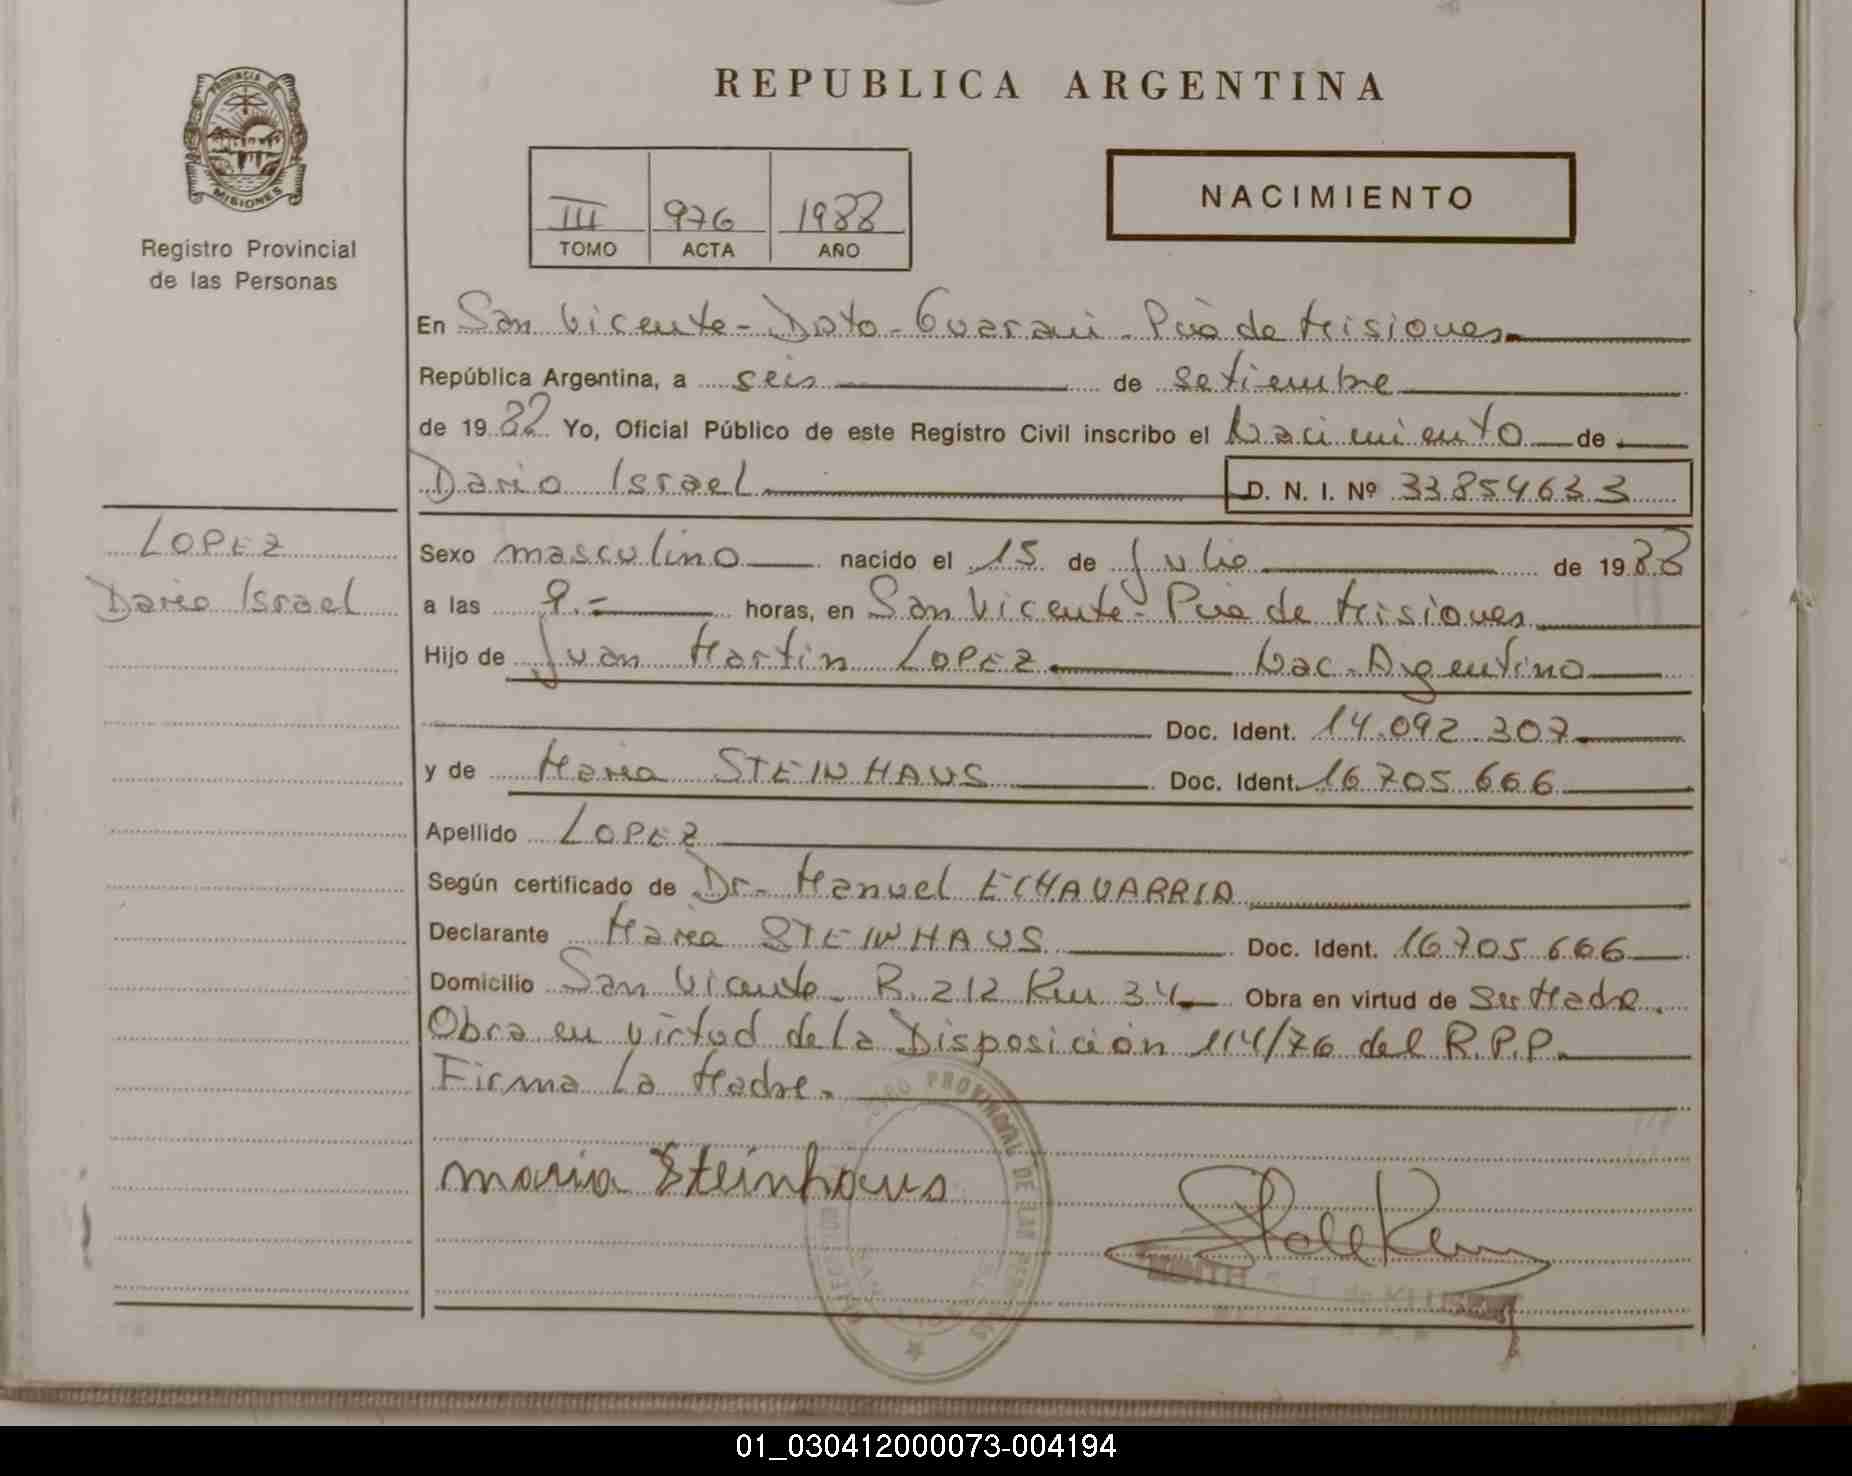 REPUBLICA ARGENTINA
PROVINCIA DE MISIONES
Registro Provincial
de las Personas
III 976 1988
TOMO ACTA AÑO
NACIMIENTO
En San Vicente - Dpto - Guarani - Pcia de Misiones
República Argentina, a seis de setiembre
de 1988 Yo, Oficial Público de este Registro Civil inscribo el Nacimiento de
Dario Israel D. N. I. Nº 33854633
LOPEZ
Dario Israel
Sexo masculino nacido el 15 de Julio de 1988
a las 9.- horas, en San Vicente - Pcia de Misiones
Hijo de Juan Martin LOPEZ Nac. Argentino
Doc. Ident. 14.092.307
y de Maria STEINHAUS Doc. Ident. 16705.666
Apellido LOPEZ
Según certificado de Dr. Manuel ECHAVARRIA
Declarante Maria STEINHAUS Doc. Ident. 16.705.666
Domicilio San Vicente - R. 212 Km 34 Obra en virtud de Ser Madre.
Obra en virtud de la Disposición 114/76 del R.P.P.
Firma La Madre.
maria Steinhaus
PROVINCIAL DE LAS PERSONAS
01_030412000073-004194